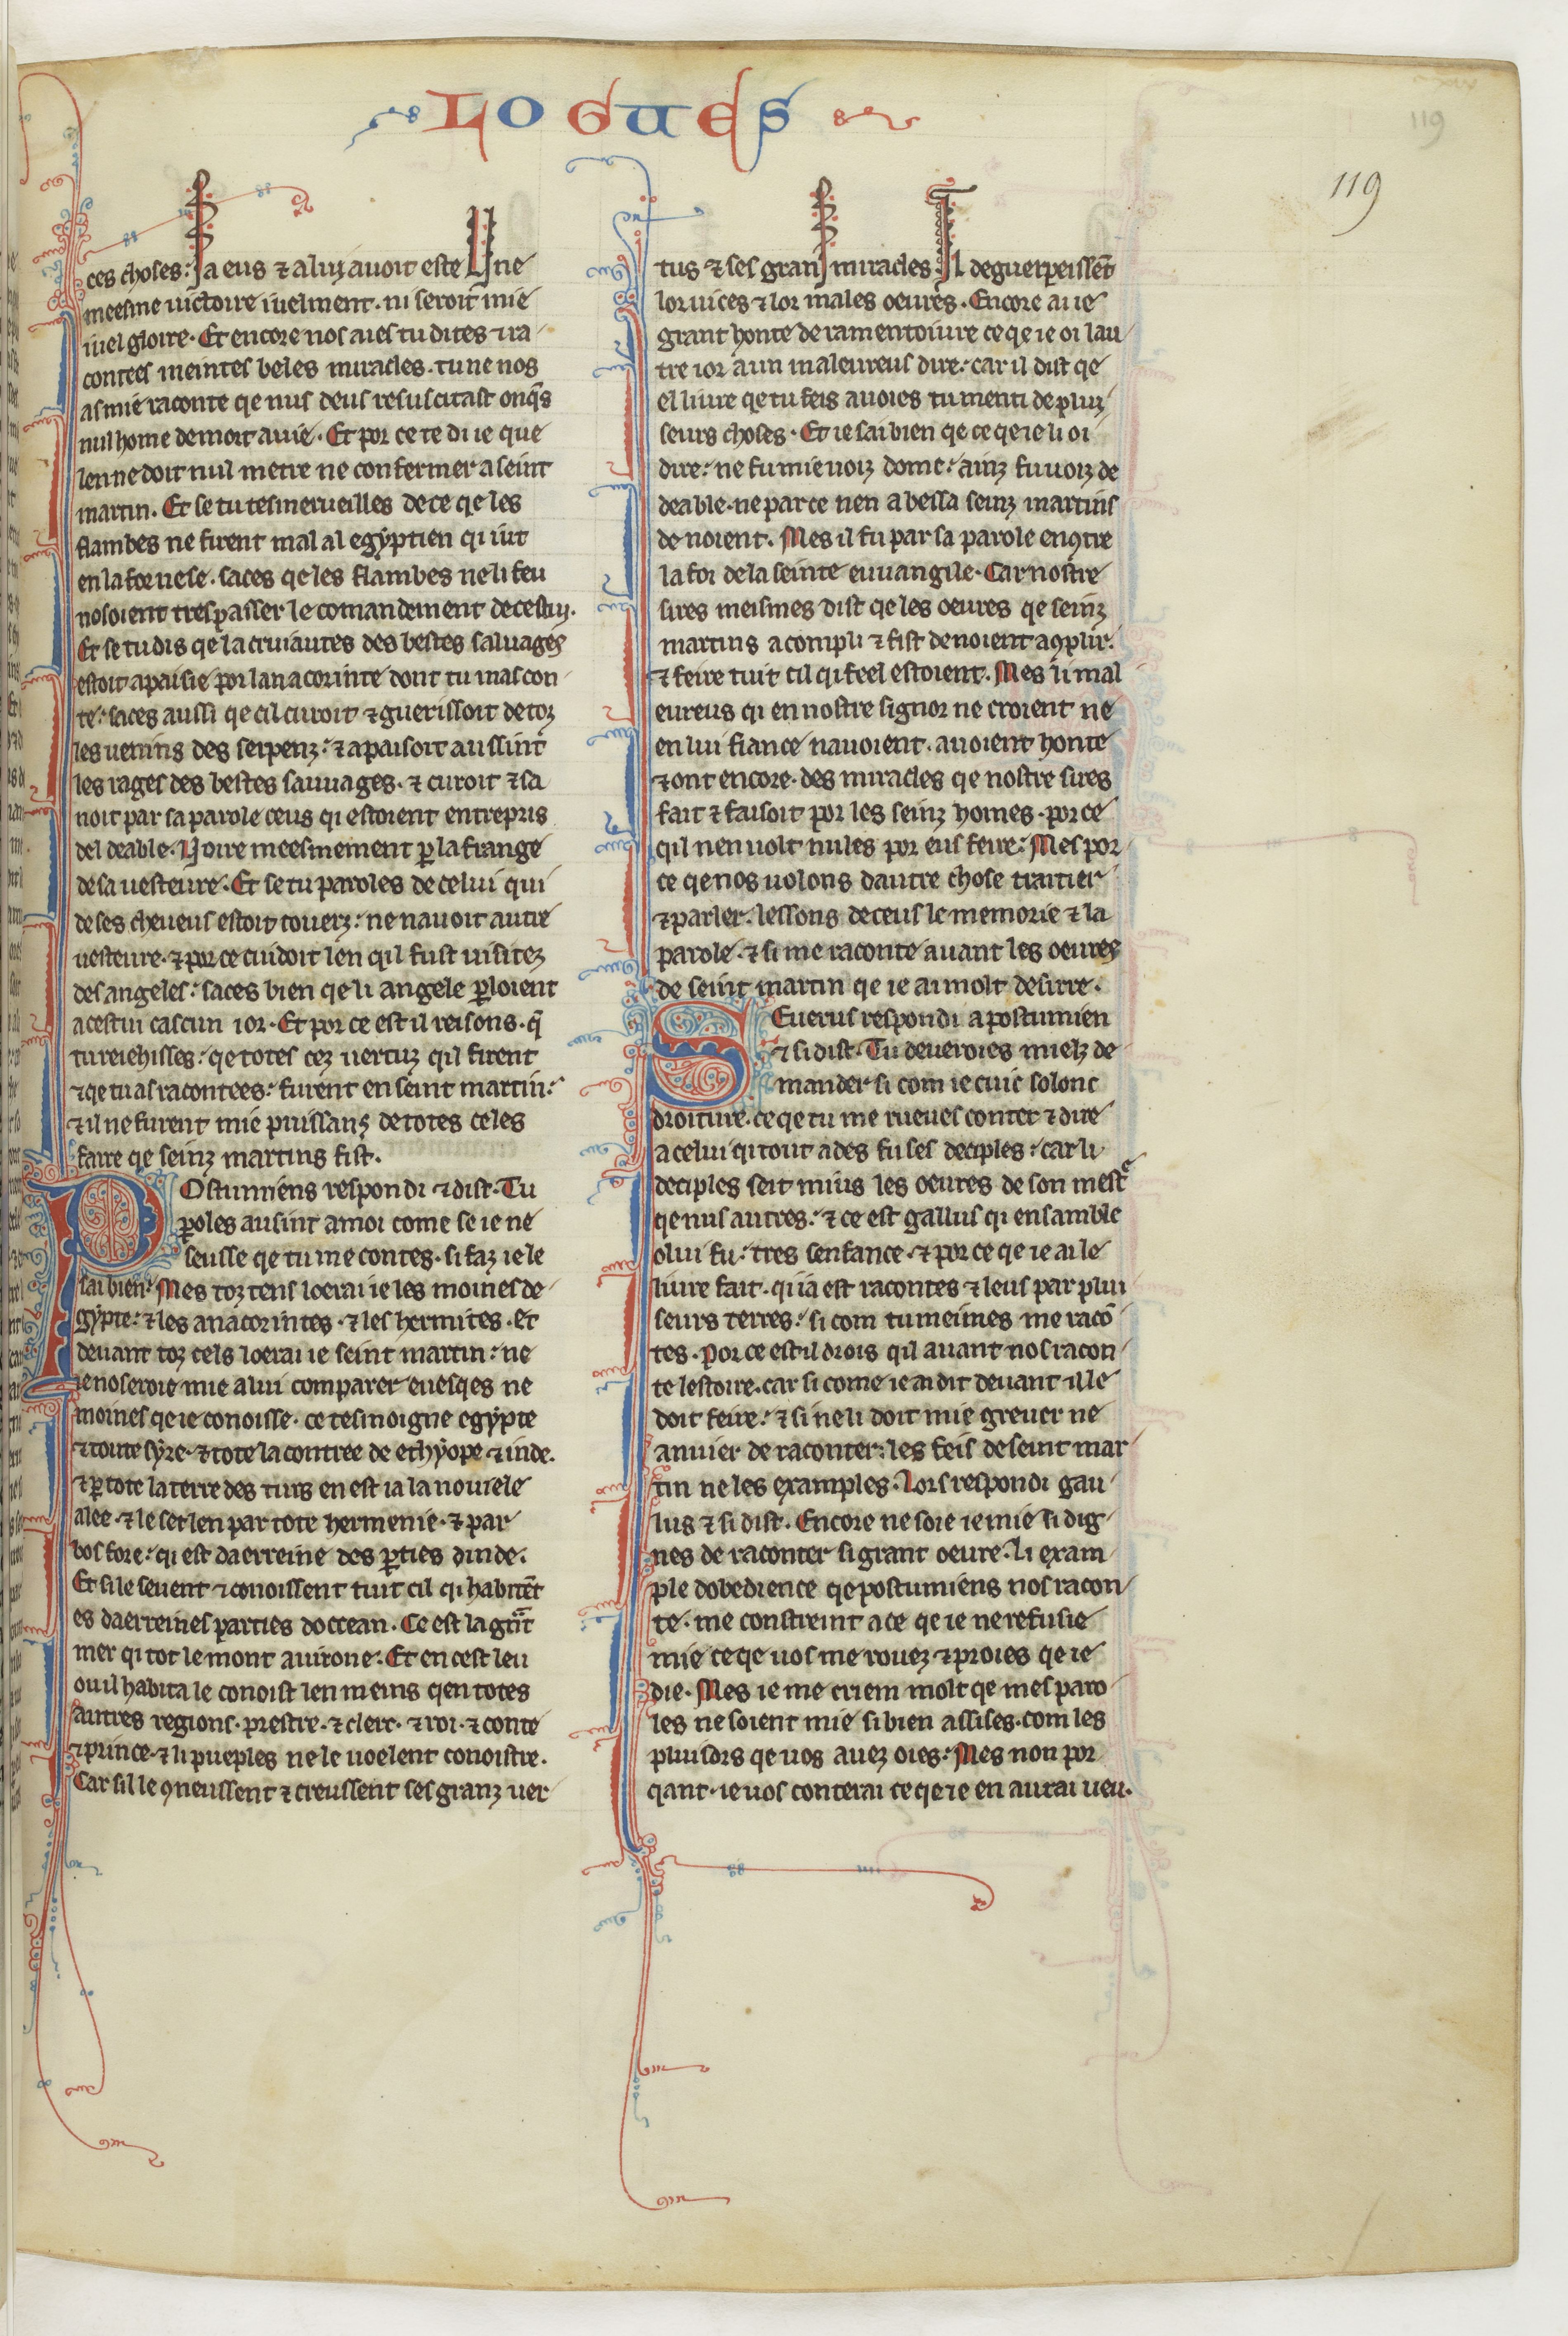 LOGUES
119
119
ces choses: Ja eus ⁊ a luy avoit este Une
meesme uictoire iuelment. ni seroit mie
iuel gloire. Et encore nos aies tu dites ⁊ ra-
contees meintes beles miracles. tu ne nos
as mie raconte qe nus deus resuscitast onq̃s
nul home de mort a uie. Et por ce te di ie que
len ne doit nul metre ne confermer a seint
martin. Et se tu tesmerueilles de ce qe les
flambes ne firent mal al egyptien qi iut
en la fornese. saces qe les flambes ne li feu
nosoient trespasser le comandement de cestuy.
Et se tu dis qe la cruiautes des bestes saluages
estoit apaisie por lanacorinte dont tu mas con-
te: saces aussi qe cil curoit ⁊ guerissoit de toz
les uenins des serpenz: ⁊ apaisoit aussint
les rages des bestes sauuages. ⁊ curoit ⁊ sa
noit par sa parole ceus qi estoient entrepris
del deable. Uoire meesmement ꝑ la frange
de sa uesteure. Et se tu paroles de celui qui
de ses cheueus estoit couerz: ne nauoit autre
uesteure. ⁊ por ce cuidoit len qil fust uisitez
des angeles: saces bien qe li angele ꝑloient
a cestui cascun ior. Et por ce est il reisons. q̃
tu reiehisses: qe totes cez uertuz qil firent
⁊ qe tu as racontees: furent en seint martin:
⁊ il ne furent mie puissanz de totes celes
faire qe seinz martins fist.
Postumiens respondi ⁊ dist. Tu
ꝑoles ausint a moi come se ie ne
seusse qe tu me contes. si faz ie le
sai bien: Mes toz tens loerai ie les moines de-
gypte: ⁊ les anacorintes. ⁊ les hermites. et
deuant toz cels loerai ie seint martin: ne
ie noseroie mie a lui comparer euesqes ne
moines qe ie conoisse. ce tesmoigne egypte
⁊ toute syre. ⁊ tote la contree de ethyope ⁊ inde.
⁊ ꝑ tote la terre des turs en est ia la nouuele
alee. ⁊ le set len par tote hermenie. ⁊ par
bosfore: qi est daerreine des ꝑties dinde.
Et si le seuent ⁊ conoissent tuit cil qi habitẽt
es daerreines parties doccean. Ce est la grãt
mer qi tot le mont auirone. Et en cest leu
ou il habita le conoist len meins qen totes
autres regions. prestre. ⁊ clerc. ⁊ roi. ⁊ conte
⁊ prince. ⁊ li pueples ne le uoelent conoistre.
Car sil le ꝯneussent ⁊ creussent ses granz uer
tus ⁊ ses granz miracles: Il deguerpeissẽt
lor uices ⁊ lor males oeures. Encore ai ie
grant honte de ramentoiure ce qe ie oi lau
tre ior a un maleureus dire: car il dist qe
el liure qe tu feis auoies tu menti de plui
seurs choses. Et ie sai bien qe ce qe ie li oi
dire: ne fu mie uoiz dome: ainz fu uoiz de
deable. ne par ce nen abessa seinz martins
de noient. Mes il fu par sa parole enꝯtre
la foi de la seinte euuangile. Car nostre
sires meismes dist qe les oeures qe seinz
martins acompli ⁊ fist de noient aꝯplir.
⁊ feire tuit cil qi feel estoient. Mes li mal
eureus qi en nostre signor ne croient ne
en lui fiance nauoient. auoient honte
⁊ ont encore. des miracles qe nostre sires
fait ⁊ faisoit por les seinz homes. por ce
qil nen uolt nules por eus feire: Mes por
ce qe nos uolons dautre chose traitier
⁊ parler. lessons de ceus le memorie ⁊ la
parole. ⁊ si me raconte auant les oeures
de seint martin qe ie ai molt desirre.
Seuerus respondi a postumien
⁊ si dist. Tu deueroies mielz de
mander si com ie cuic solonc
droiture. ce qe tu me rueues conter ⁊ dire
a celui qi tout ades fu ses deciples: car li
deciples seit mius les oeures de son mestͤ
qe nus autres: ⁊ ce est gallus qi ensamble
o lui fu: tres senfance. ⁊ por ce qe ie ai le
liure fait. qi ia est racontes ⁊ leus par plui
seurs terres: si com tu meimes me racõ
tes. Por ce est il drois qil auant nos racon-
te lestoire. car si come ie ai dit deuant il le
doit feire: ⁊ si ne li doit mie greuer ne
anuier de raconter: les feis de seint mar
tin ne les examples. Lors respondi gau
lus ⁊ si dist. Encore ne soie ie mie si dig-
nes de raconter si grant oeure. li exam
ple dobedience qe postumiens nos racon
te. me constreint a ce qe ie ne refusie
mie ce qe uos me rouez ⁊ proies qe ie
die. Mes ie me criem molt qe mes paro
les ne soient mie si bien assises. com les
pluisors qe uos auez oies: Mes non por
qant. ie uos conterai ce qe ie en aurai ueu.